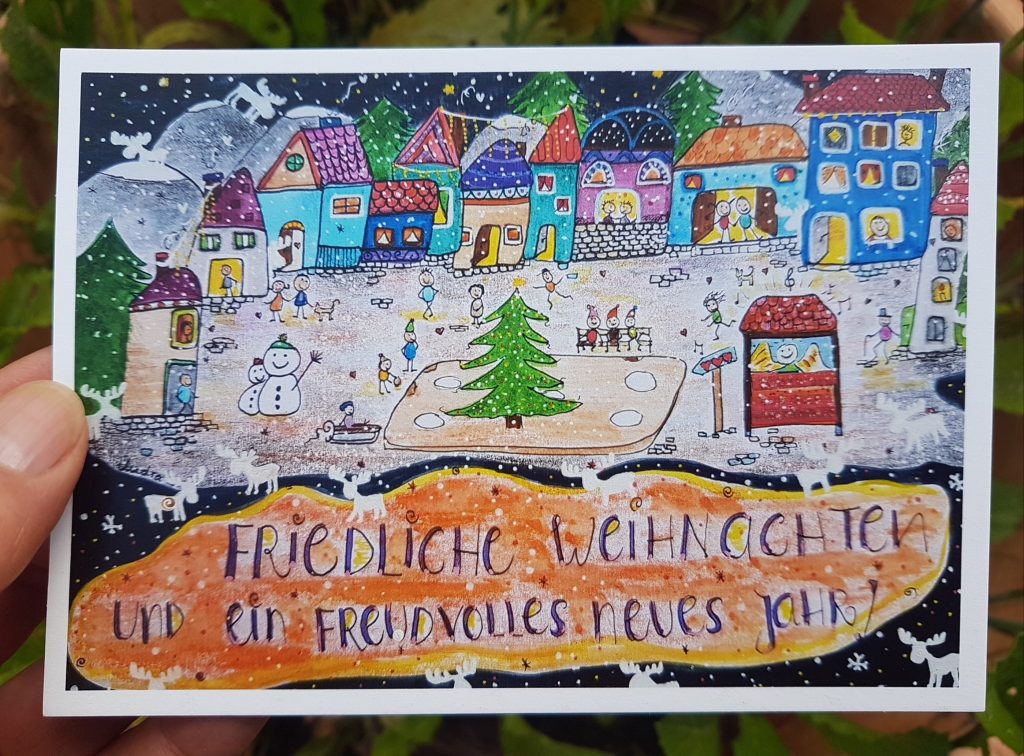 FRIEDLICHE WEIHNACHTEN
UND EIN FREUDVOLLES NEUES JAHR!